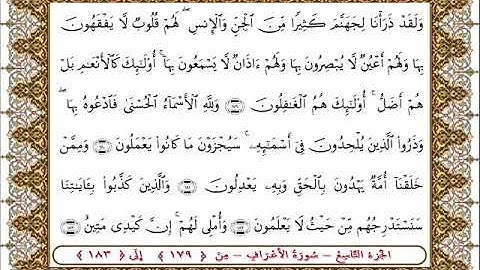 وَلَقَدْ ذَرَأْنَا لِجَهَنَّمَ كَثِيرًا مِّنَ ٱلْجِنِّ وَٱلْإِنسِ ۖ لَهُمْ قُلُوبٌ لَّا يَفْقَهُونَ
بِهَا وَلَهُمْ أَعْيُنٌ لَّا يُبْصِرُونَ بِهَا وَلَهُمْ ءَاذَانٌ لَّا يَسْمَعُونَ بِهَآ ۚ أُو۟لَـٰٓئِكَ كَٱلْأَنْعَـٰمِ بَلْ
هُمْ أَضَلُّ ۚ أُو۟لَـٰٓئِكَ هُمُ ٱلْغَـٰفِلُونَ ﴿١٧٩﴾ وَلِلَّهِ ٱلْأَسْمَآءُ ٱلْحُسْنَىٰ فَٱدْعُوهُ بِهَا ۖ
وَذَرُوا۟ ٱلَّذِينَ يُلْحِدُونَ فِىٓ أَسْمَـٰٓئِهِۦ ۚ سَيُجْزَوْنَ مَا كَانُوا۟ يَعْمَلُونَ ﴿١٨٠﴾ وَمِمَّنْ
خَلَقْنَآ أُمَّةٌ يَهْدُونَ بِٱلْحَقِّ وَبِهِۦ يَعْدِلُونَ ﴿١٨١﴾ وَٱلَّذِينَ كَذَّبُوا۟ بِـَٔايَـٰتِنَا
سَنَسْتَدْرِجُهُم مِّنْ حَيْثُ لَا يَعْلَمُونَ ﴿١٨٢﴾ وَأُمْلِى لَهُمْ ۚ إِنَّ كَيْدِى مَتِينٌ ﴿١٨٣﴾
الجزء التاسع - سورة الأعراف - من ﴿ ١٧٩ ﴾ إلى ﴿ ١٨٣ ﴾